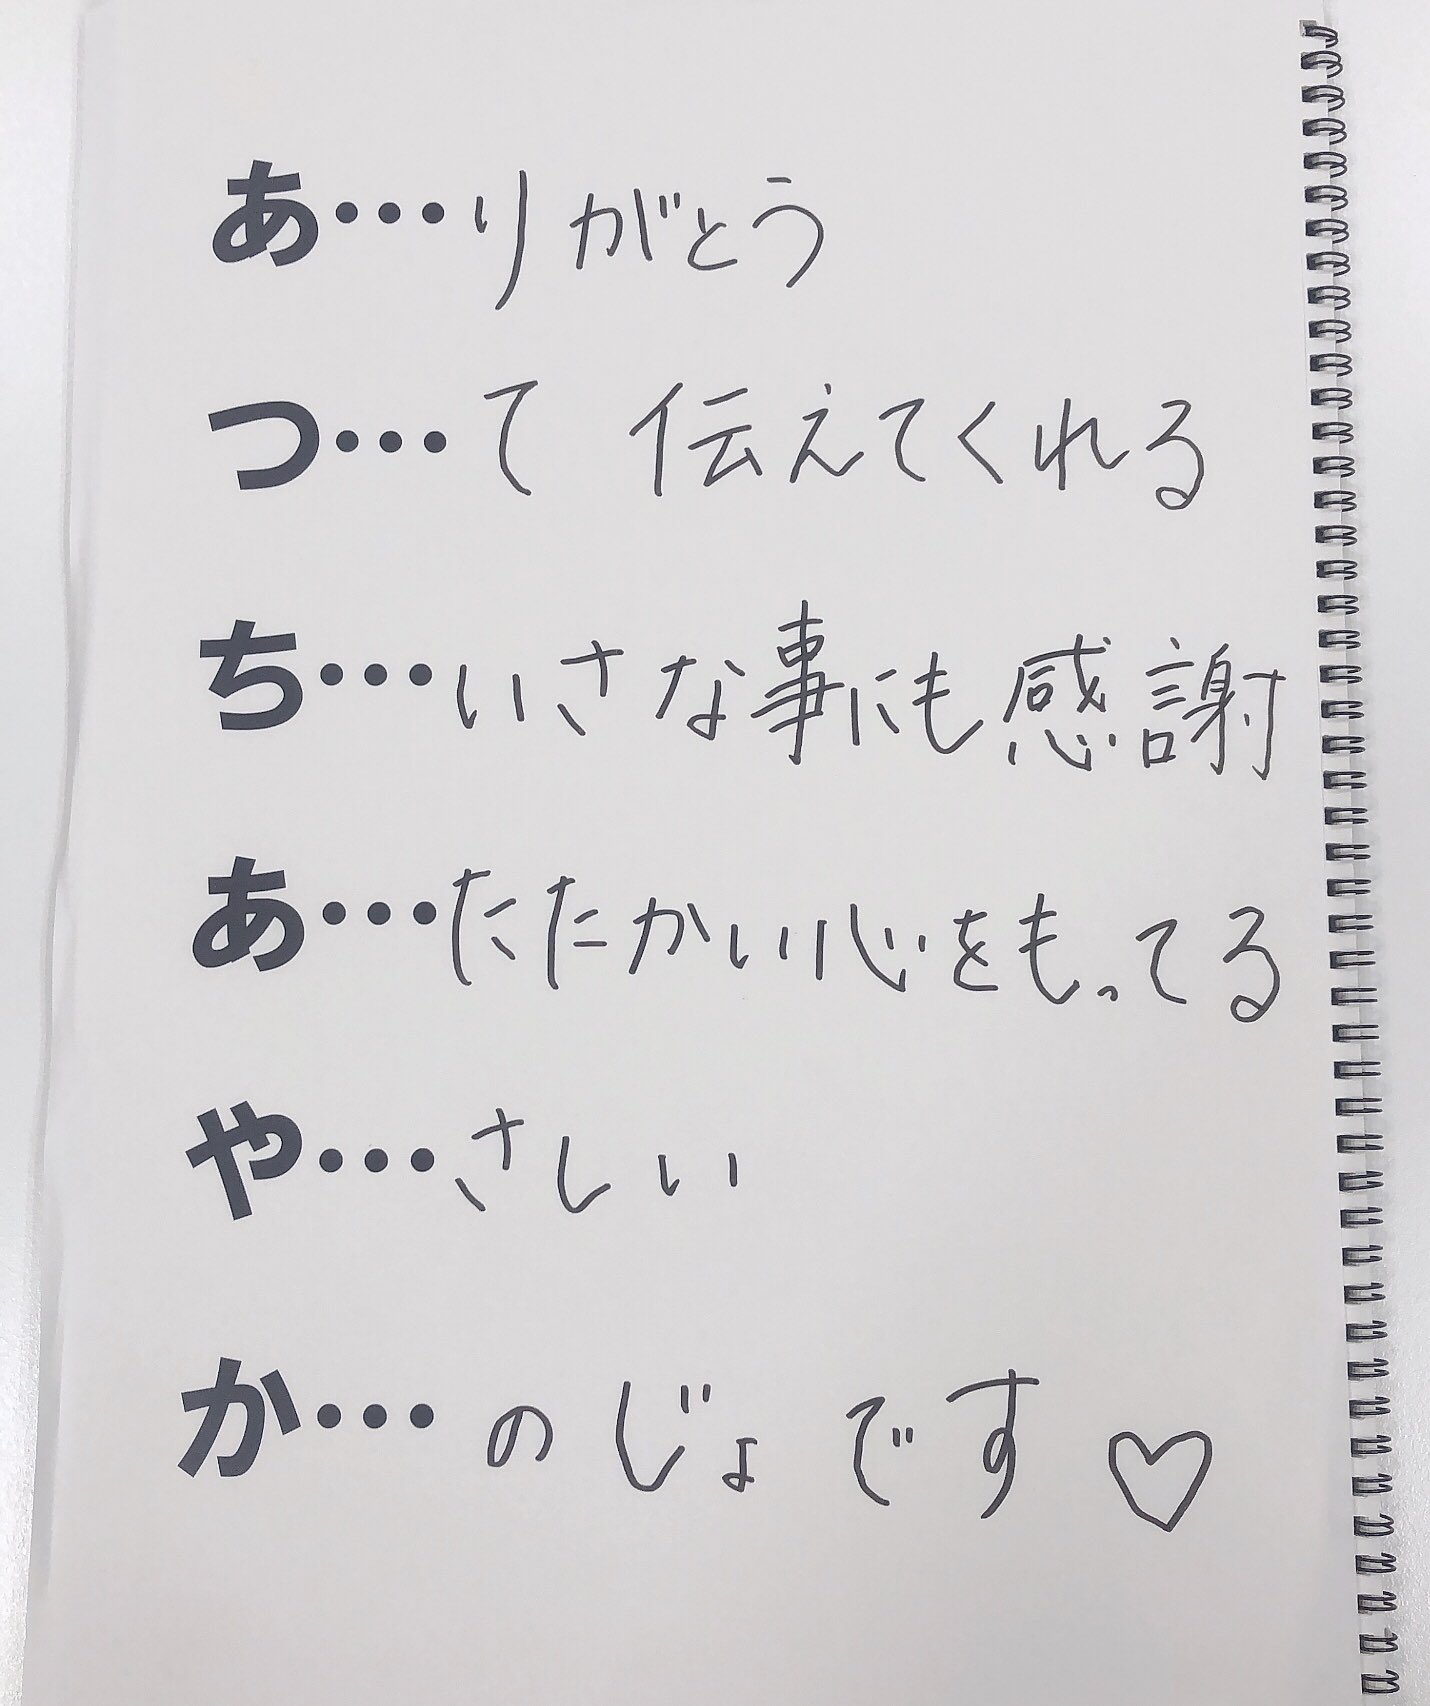 あ・・・りがとう
つ・・・て 伝えてくれる
ち・・・いさな事にも感謝
あ・・・たたかい心をもってる
や・・・さしい
か・・・のじょです♡